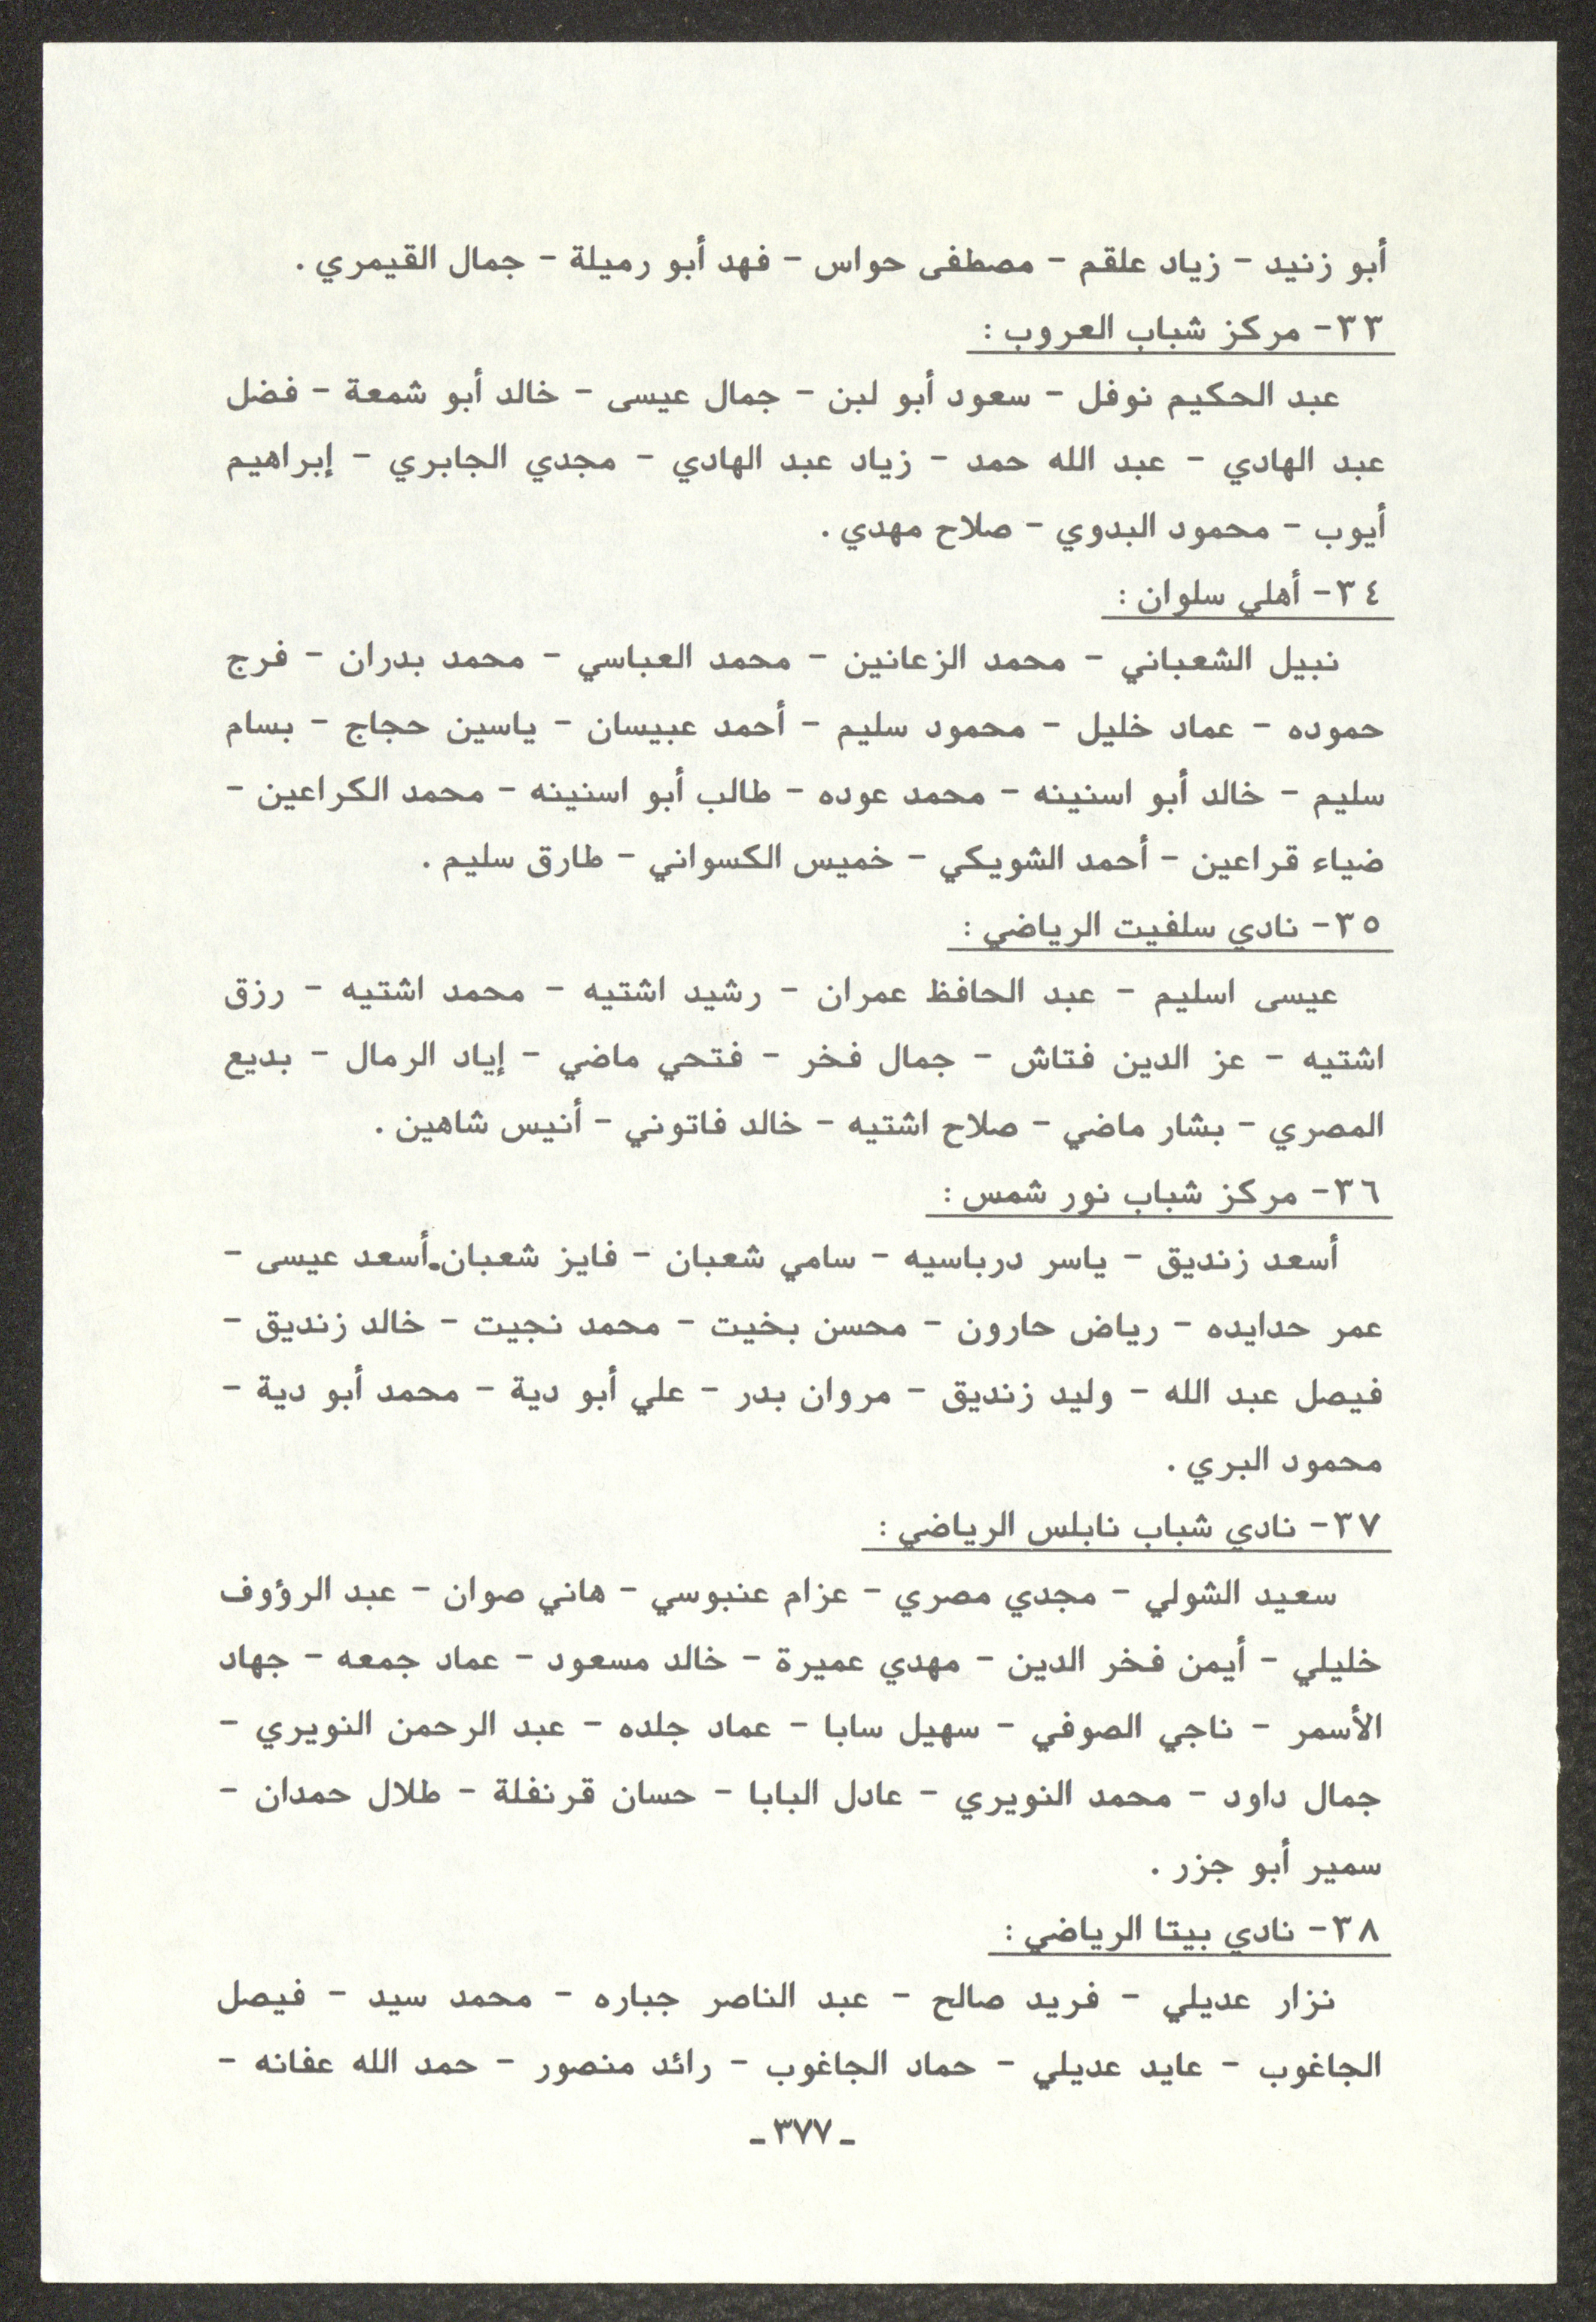 أبو زنيد - زياد علقم - مصطفى حواس - فهد أبو رميلة - جمال القيمري .
٣٣- مركز شباب العروب :
عبد الحكيم نوفل - سعود أبو لبن - جمال عيسى - خالد أبو شمعة - فضل
عبد الهادي - عبد الله حمد - زياد عبد الهادي - مجدي الجابري - إبراهيم
أيوب - محمود البدوي - صلاح مهدي .
٣٤- أهلي سلوان :
نبيل الشعباني - محمد الزعانين - محمد العباسي - محمد بدران - فرج
حموده - عماد خليل - محمود سليم - أحمد عبيسان - ياسين حجاج - بسام
سليم - خالد أبو اسنينه - محمد عوده - طالب أبو اسنينه - محمد الكراعين -
ضياء قراعين - أحمد الشويكي - خميس الكسواني - طارق سليم .
٣٥- نادي سلفيت الرياضي :
عيسى اسليم - عبد الحافظ عمران - رشيد اشتيه - محمد اشتيه - رزق
اشتيه - عز الدين فتاش - جمال فخر - فتحي ماضي - إياد الرمال - بديع
المصري - بشار ماضي - صلاح اشتيه - خالد فاتوني - أنيس شاهين .
٣٦- مركز شباب نور شمس :
أسعد زنديق - ياسر درباسيه - سامي شعبان - فايز شعبان.أسعد عيسى -
عمر حدايده - رياض حارون - محسن بخيت - محمد نجيت - خالد زنديق -
فيصل عبد الله - وليد زنديق - مروان بدر - علي أبو دية - محمد أبو دية -
محمود البري .
٣٧- نادي شباب نابلس الرياضي :
سعيد الشولي - مجدي مصري - عزام عنبوسي - هاني صوان - عبد الرؤوف
خليلي - أيمن فخر الدين - مهدي عميرة - خالد مسعود - عماد جمعه - جهاد
الأسمر - ناجي الصوفي - سهيل سابا - عماد جلده - عبد الرحمن النويري -
جمال داود - محمد النويري - عادل البابا - حسان قرنفلة - طلال حمدان -
سمير أبو جزر .
٣٨- نادي بيتا الرياضي :
نزار عديلي - فريد صالح - عبد الناصر جباره - محمد سيد - فيصل
الجاغوب - عايد عديلي - حماد الجاغوب - رائد منصور - حمد الله عفانه -
ـ ٣٧٧ ـ